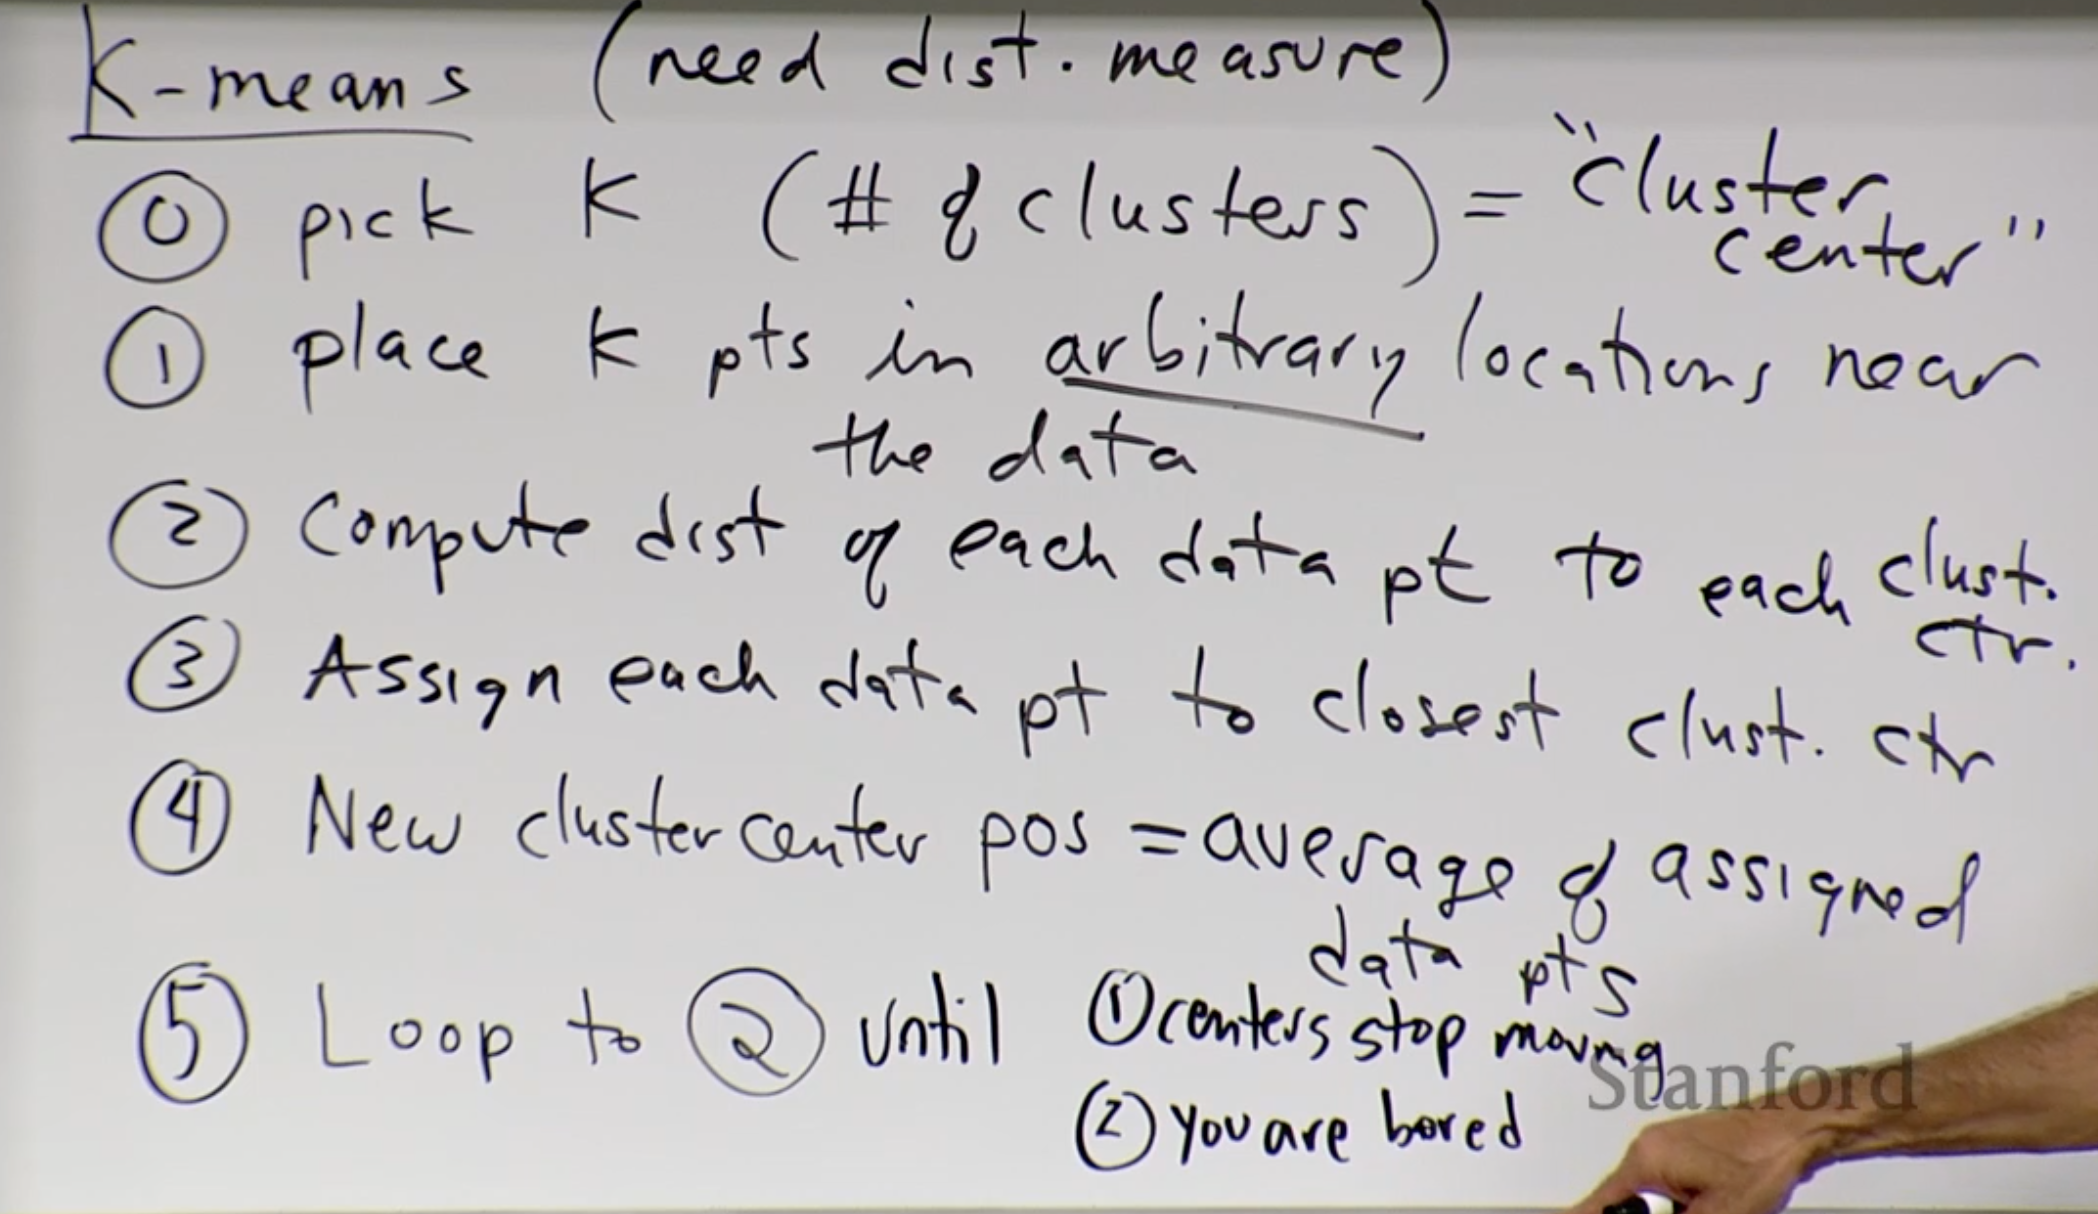 K-means (need dist. measure)
⓪ pick K (# of clusters) = "cluster
center"
① place K pts in arbitrary locations near
the data
② Compute dist of each data pt to each clust.
ctr.
③ Assign each data pt to closest clust. ctr
④ New cluster center pos = average of assigned
data pts
⑤ Loop to ② until ① centers stop moving
② you are bored
Stanford